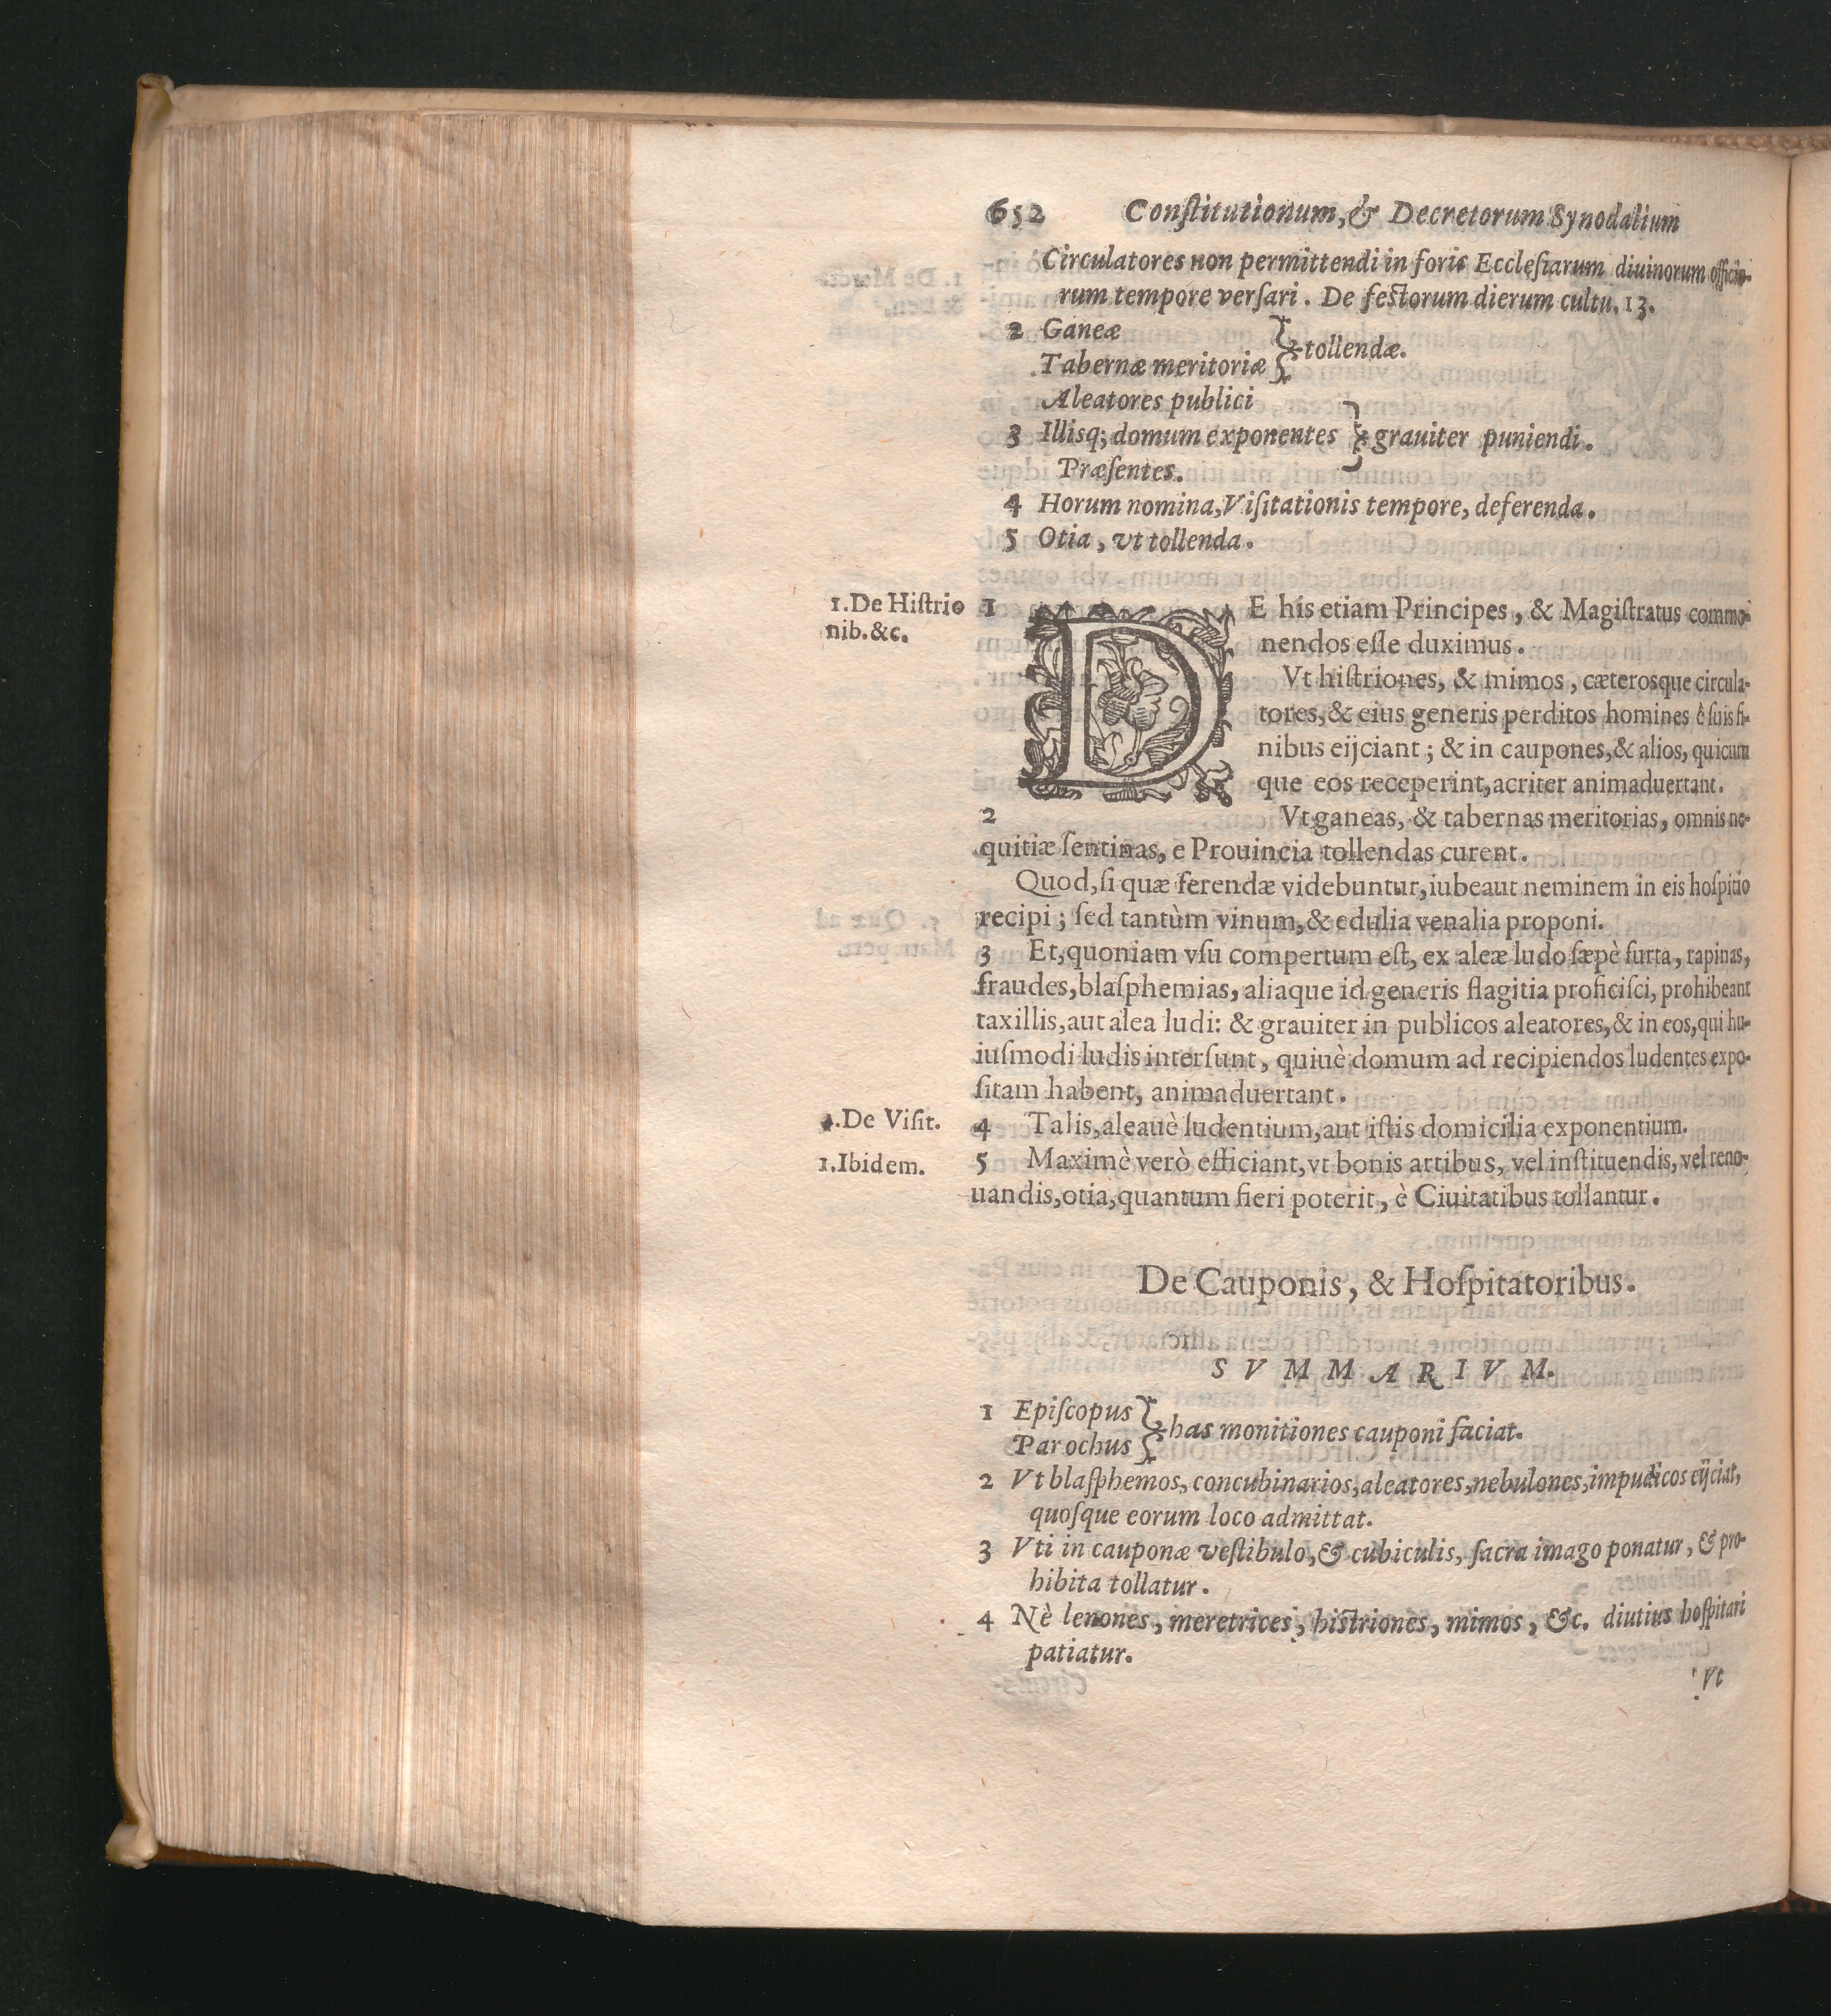 652 Conſtitutionum, & Decretorum Synodalium
Circulatores non permittendi in foris Eccleſiarum diuinorum officio-
rum tempore verſari. De feſtorum dierum cultu. 13.
2 Ganeæ
tollendæ.
Tabernæ meritoriæ
Aleatores publici
3 Illisq; domum exponentes grauiter puniendi.
Præſentes.
4 Horum nomina, Viſitationis tempore, deferenda.
5 Otia, vt tollenda.
1. De Hiſtrio
nib. &c.
1 DE his etiam Principes, & Magiſtratus commo-
nendos eſſe duximus.
Vt hiſtriones, & mimos, cæterosque circula-
tores, & eius generis perditos homines è ſuis fi-
nibus eijciant; & in caupones, & alios, quicum
que eos receperint, acriter animaduertant.
2 Vt ganeas, & tabernas meritorias, omnis ne-
quitiæ ſentinas, e Prouincia tollendas curent.
Quod, ſi quæ ferendæ videbuntur, iubeaut neminem in eis hoſpitio
recipi; ſed tantùm vinum, & edulia venalia proponi.
3 Et, quoniam vſu compertum eſt, ex aleæ ludo ſæpè furta, rapinas,
fraudes, blaſphemias, aliaque id generis flagitia proficiſci, prohibeant
taxillis, aut alea ludi: & grauiter in publicos aleatores, & in eos, qui hu-
iuſmodi ludis interſunt, quiuè domum ad recipiendos ludentes expo-
ſitam habent, animaduertant.
4. De Viſit.
4 Talis, aleauè ludentium, aut iſtis domicilia exponentium.
1. Ibidem.
5 Maximè verò efficiant, vt bonis artibus, vel inſtituendis, vel reno-
uandis, otia, quantum fieri poterit, è Ciuitatibus tollantur.
De Cauponis, & Hoſpitatoribus.
SVMMARIVM.
1 Epiſcopus
has monitiones cauponi faciat.
Parochus
2 Vt blaſphemos, concubinarios, aleatores, nebulones, impudicos eijciat,
quoſque eorum loco admittat.
3 Vti in cauponæ veſtibulo, & cubiculis, ſacra imago ponatur, & pro-
hibita tollatur.
4 Nè lenones, meretrices, hiſtriones, mimos, &c. diutius hoſpitari
patiatur.
Vt